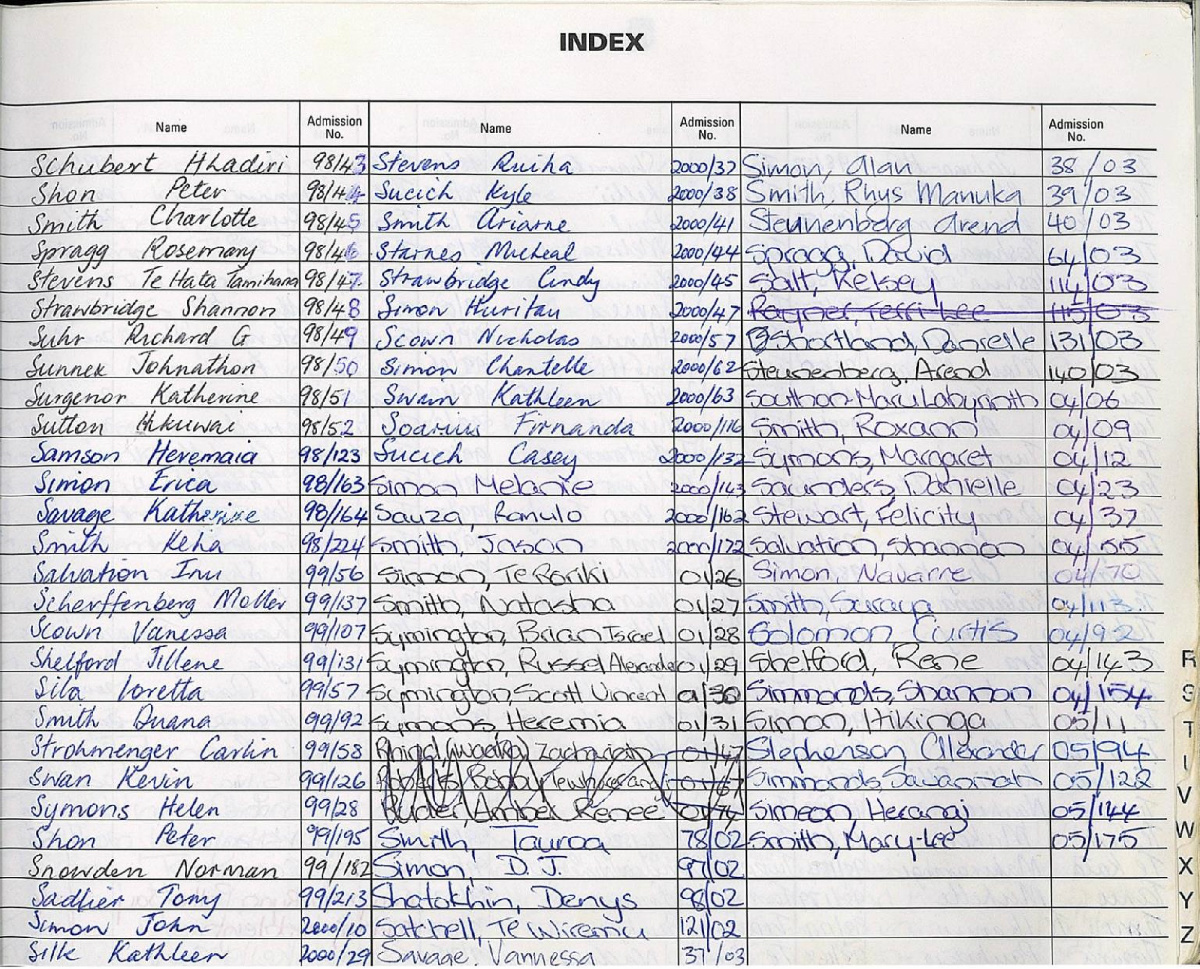 INDEX
Name Admission No. Name Admission No. Name Admission No.
Schubert Hhadiri 98/43 Stevens Ruiha 2000/37 Simon, Alan 38/03
Shon Peter 98/44 Sucich Kyle 2000/38 Smith, Rhys Manuka 39/03
Smith Charlotte 98/45 Smith Ariarne 2000/41 Steunenberg Arend 40/03
Spragg Rosemary 98/46 Starnes Micheal 2000/44 Spragg, David 64/03
Stevens Te Hata Tamihana 98/47 Strawbridge Cindy 2000/45 Salt, Kelsey 114/03
Strawbridge Shannon 98/48 Simon Huritau 2000/47 Rayner Terri-Lee 115/03
Suhr Richard G 98/49 Scown Nicholas 2000/57 Shortland, Danielle 131/03
Sunnex Johnathon 98/50 Simon Chantelle 2000/62 Steunenberg, Arend 140/03
Surgenor Katherine 98/51 Swan Kathleen 2000/63 Southon-Maru Labyrinth 04/06
Sutton Hikuwai 98/52 Firnanda 2000/116 Smith, Roxann 04/09
Samson Heremaia 98/123 Sucich Casey 2000/132 Symons, Margaret 04/12
Simon Erica 98/163 Simon Melanie 2000/143 Saunders, Danielle 04/23
Savage Katherine 98/164 Sauza, Ranulo 2000/162 Stewart, Felicity 04/37
Smith Keha 98/224 Smith, Jason 2000/172 Salvation, Shannon 04/55
Salvation Inu 99/56 Simon, Te Roriki 01/26 Simon, Navarre 04/70
Scherffenberg Moller 99/137 Smith, Natasha 01/27 Smith, Soraya 04/113
Scown Vanessa 99/107 Symington, Brian Israel 01/28 Solomon Curtis 04/92
Shelford Jillene 99/131 Symington, Russel Alexander 01/29 Shelford, Rene 04/143
Sila Loretta 99/57 Symington, Scott Vincent 01/30 Simmonds, Shannon 04/154
Smith Quana 99/92 Symons, Heremia 01/31 Simon, Hikinga 05/11
Strohmenger Carlin 99/58 01/47 Stephenson Allexander 05/94
Swan Kevin 99/126 Bobby 01/67 Simmonds, Savannah 05/122
Symons Helen 99/28 Amber Renee 01/74 Simeon, Herangi 05/144
Shon Peter 99/195 Smith, Tauroa 78/02 Smith, Mary-Lee 05/175
Snowden Norman 99/182 Simon, D.J. 97/02
Sadlier Tony 99/213 Shatokhin, Denys 98/02
Simon John 2000/10 Satchell, Te Wiremu 121/02
Silk Kathleen 2000/29 Savage, Vannessa 37/03
R
S
T
V
W
X
Y
Z